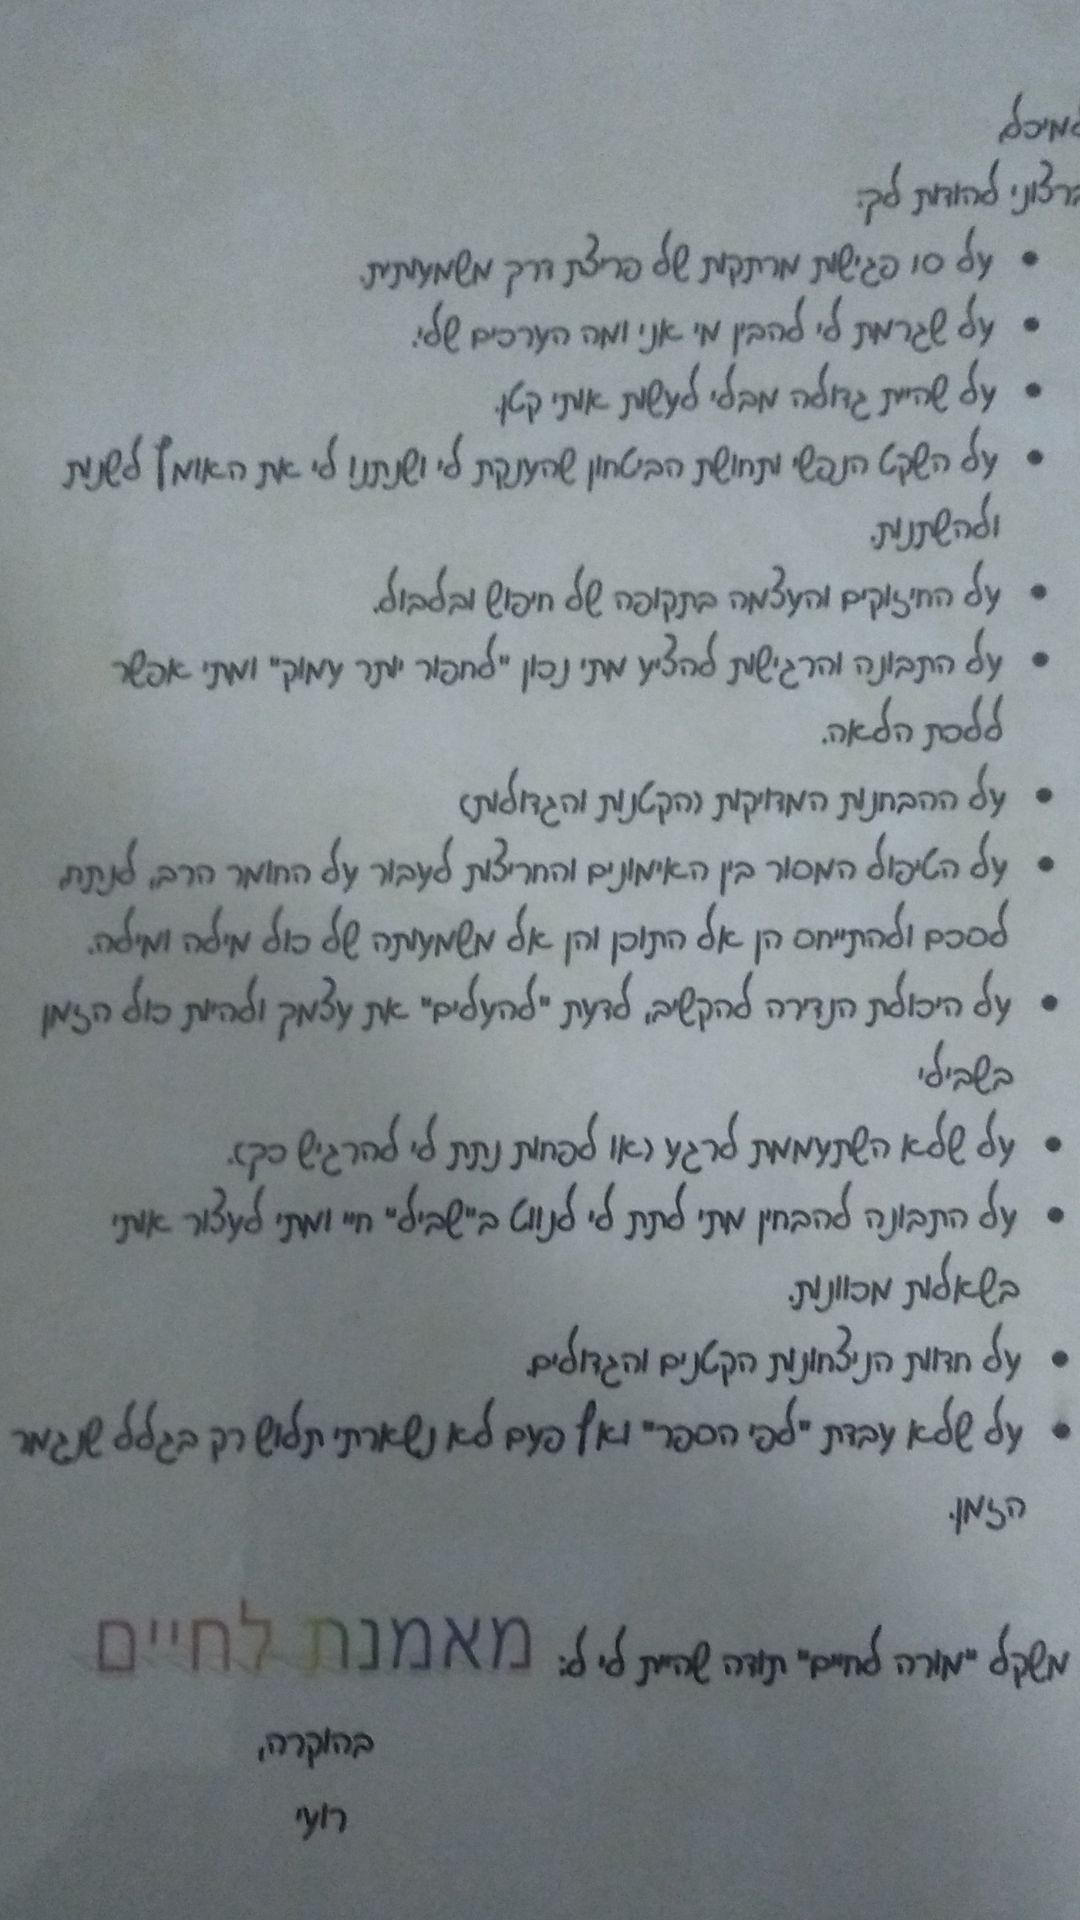 למיכל,
ברצוני להודות לך:
• על 10 פגישות מרתקות של פריצת דרך משמעותית.
• על שגרמת לי להבין מי אני ומה הערכים שלי.
• על שהיית גדולה מבלי לעשות אותי קטן.
• על השקט הנפשי ותחושת הביטחון שהענקת לי ושנתנו לי את האומץ לשנות
ולהשתנות.
• על החיזוקים והעצמה בתקופה של חיפוש ובלבול.
• על התבונה והרגישות להציע מתי נכון "לחפור יותר עמוק" ומתי אפשר
ללכת הלאה.
• על ההבחנות המדויקות (הקטנות והגדולות)
• על הטיפול המסור בין האימונים והחריצות לעבור על החומר הרב, לנתח,
לסכם ולהתייחס הן אל התוכן והן אל משמעותה של כול מילה ומילה.
• על היכולת הנדירה להקשיב, לדעת "להעלים" את עצמך ולהיות כול הזמן
בשבילי
• על שלא השתעממת לרגע (או לפחות נתת לי להרגיש כך).
• על התבונה להבחין מתי לתת לי לנווט ב"שביל" חיי ומתי לעצור אותי
בשאלות מכוונות.
• על חדוות הניצחונות הקטנים והגדולים.
• על שלא עבדת "לפי הספר" ואף פעם לא נשארתי תלוש רק בגלל שנגמר
הזמן.
משקל "מורה לחיים" תודה שהיית לי ל: מאמנת לחיים
בהוקרה,
רועי